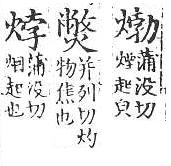 蒲没切
煙起皃
并列切灼
物焦也
㶿
蒲没切
烟起也